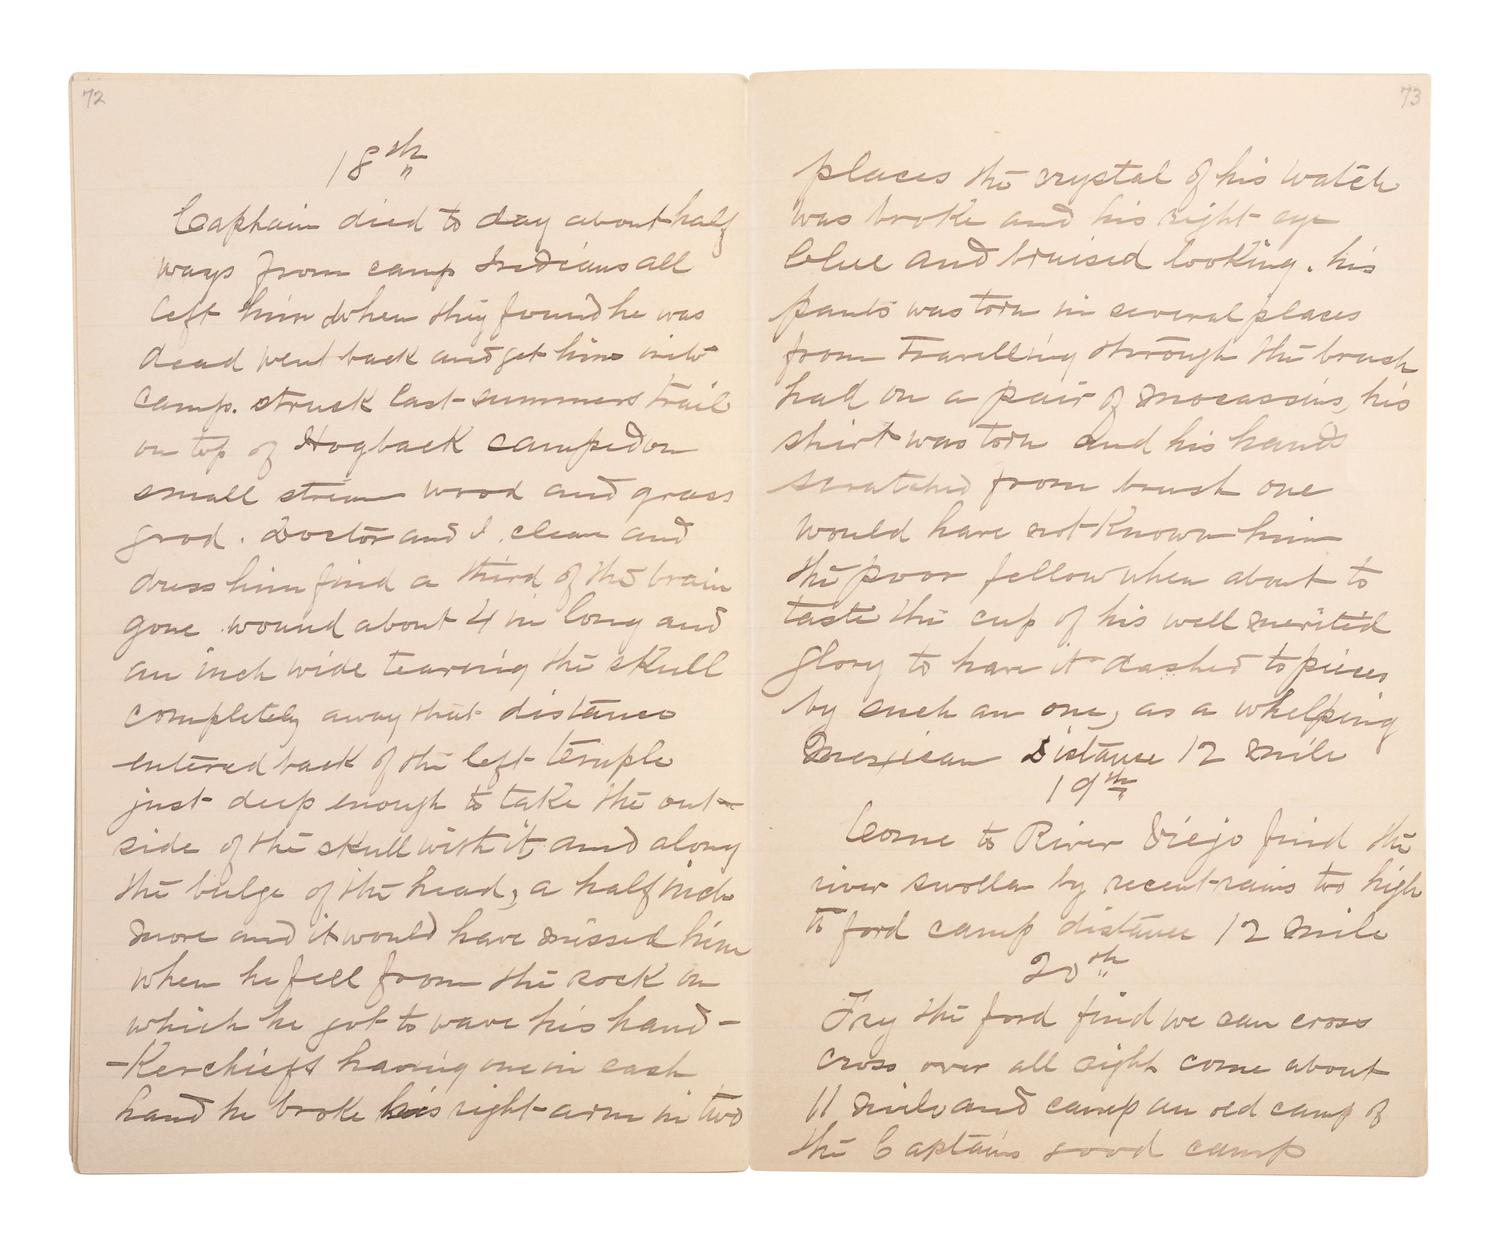 72
18th
Captain died to day about half
ways from camp Indians all
left him when they found he was
dead went back and get him into
camp. struck last summers trail
on top of Hogback camped on
small stream wood and grass
good. Doctor and I clean and
dress him find a third of the brain
gone wound about 4 in long and
an inch wide tearing the skull
completely away that distance
entered back of the left temple
just deep enough to take the out-
side of the skull with it, and along
the bulge of the head, a half inch
more and it would have missed him
when he fell from the rock on
which he got to wave his hand-
-Kerchiefs having one in each
hand he broke his right arm in two
73
places the crystal of his watch
was broke and his right eye
blue and bruised looking. his
pants was torn in several places
from travelling through the brush
had on a pair of mocassins, his
shirt was torn and his hands
scratched from brush one
would have not Known him
the poor fellow when about to
taste the cup of his well merited
glory to have it dashed to pieces
by such an one, as a whelping
Mexican Distance 12 mile
19th
Come to River Diego find the
river swollen by recent rains too high
to ford camp distance 12 mile
20th
Try the ford find we can cross
cross over all right come about
11 mile and camp an old camp of
the Captains good camp